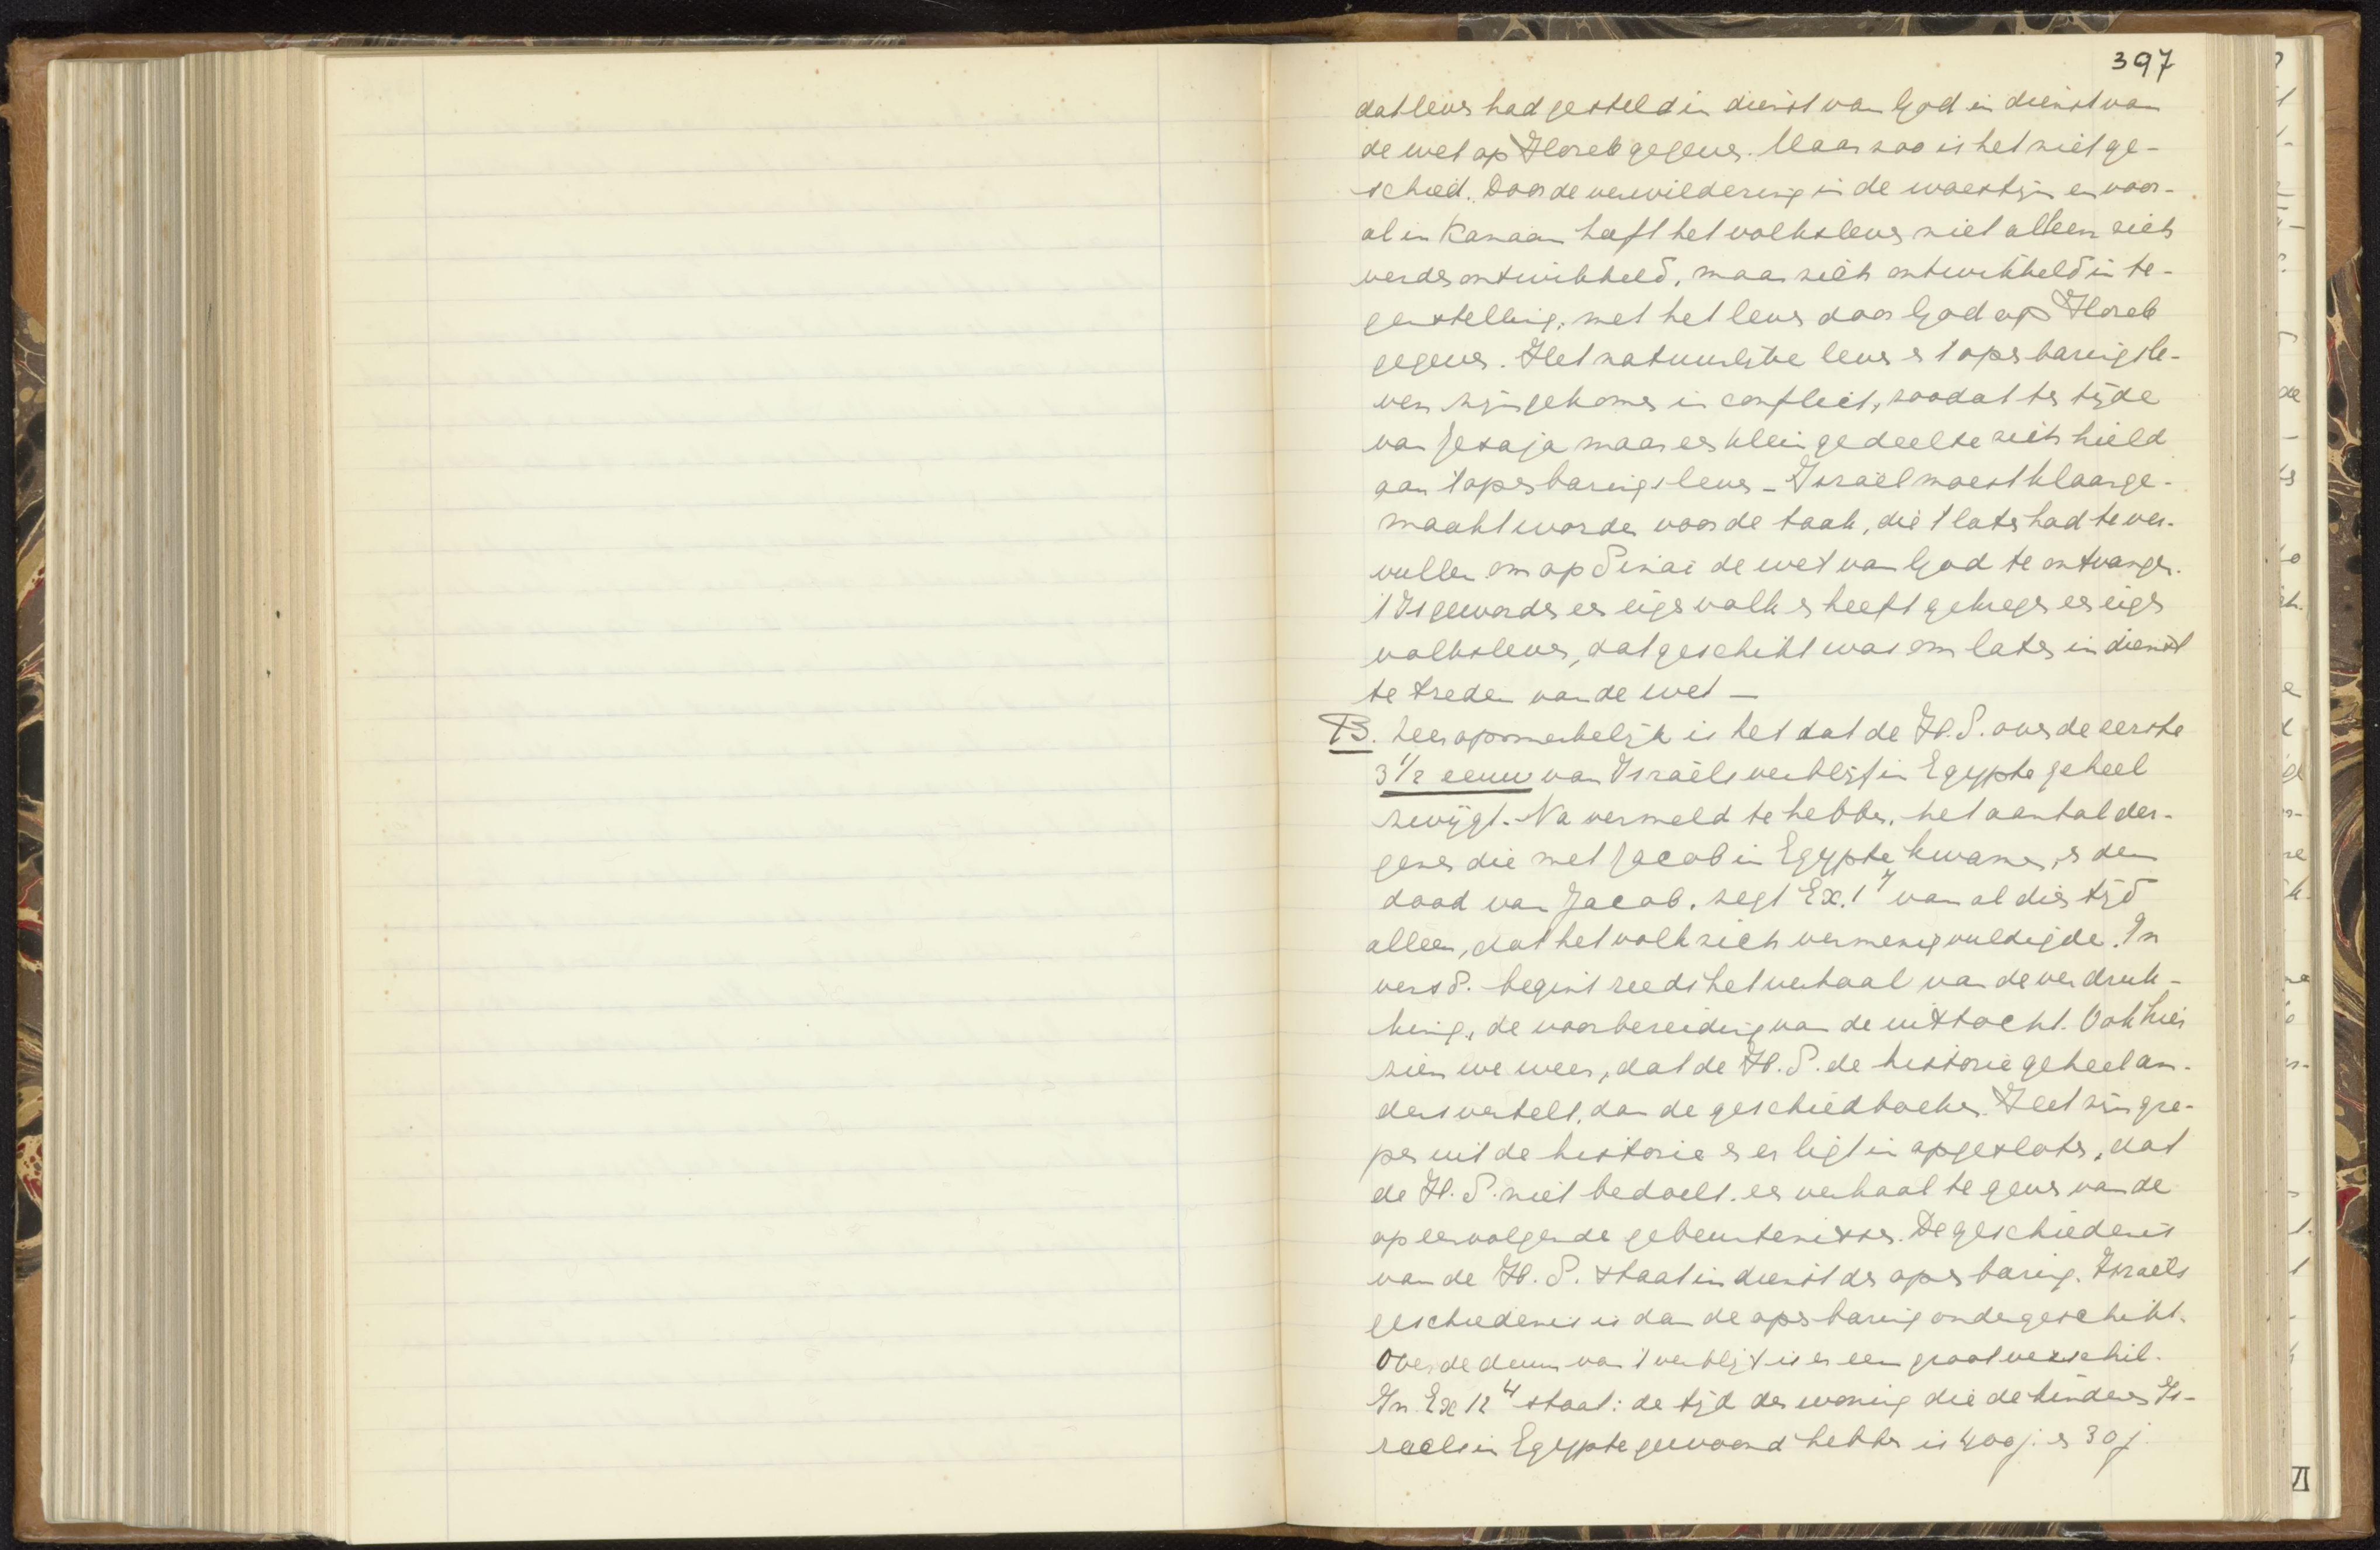 397
dat leven had gesteld in dienst van God in dienst van
de wet op Horeb gegeven. Maar zoo is het niet ge-
schied. Door de verwildering in de woestijn en voor-
al in Kanaan heeft het volksleven niet alleen zich
verder ontwikkeld, maar zich ontwikkeld in te-
genstelling, met het leven door God op Horeb
gegeven. Het natuurlijke leven en 't openbaringsle-
ven zijn gekomen in conflict, zoodat ten tijde
van Jesaja maar een klein gedeelte zich hield
aan 't openbaringsleven – Israël moest klaarge-
maakt worden voor de taak, die 't later had te ver-
vullen om op Sinai de wet van God te ontvangen.
't Is geworden een eigen volk en heeft gekregen een eigen
volksleven, dat geschikt was om later in dienst
te treden van de wet —
B. Zeer opmerkelijk is het dat de H.S. over de eerste
3 1/2 eeuw van Israëls verblijf in Egypte geheel
zwijgt. Na vermeld te hebben, het aantal der-
genen die met Jacob in Egypte kwamen, en den
dood van Jacob. zegt Ex. 1 7 van al dien tijd
alleen, dat het volk zich vermenigvuldigde. In
vers 8. begint reeds het verhaal van de verdruk-
king, de voorbereiding van de uittocht. Ook hier
zien we weer, dat de H.S. de historie geheel an-
ders vertelt, dan de geschiedboeken. Het zijn gre-
pen uit de historie en er ligt in opgesloten, dat
de H.S. niet bedoelt, een verhaal te geven van de
opeenvolgende gebeurtenissen. De geschiedenis
van de H.S. staat in dienst der openbaring. Israels
geschiedenis is dan de openbaring ondergeschikt.
Over de duur van 't verblijf is er een groot verschil.
In Ex 12 4 staat: de tijd der woning die de kinderen Is-
raels in Egypte gewoond hebben is 400 j. en 30 j.
VI